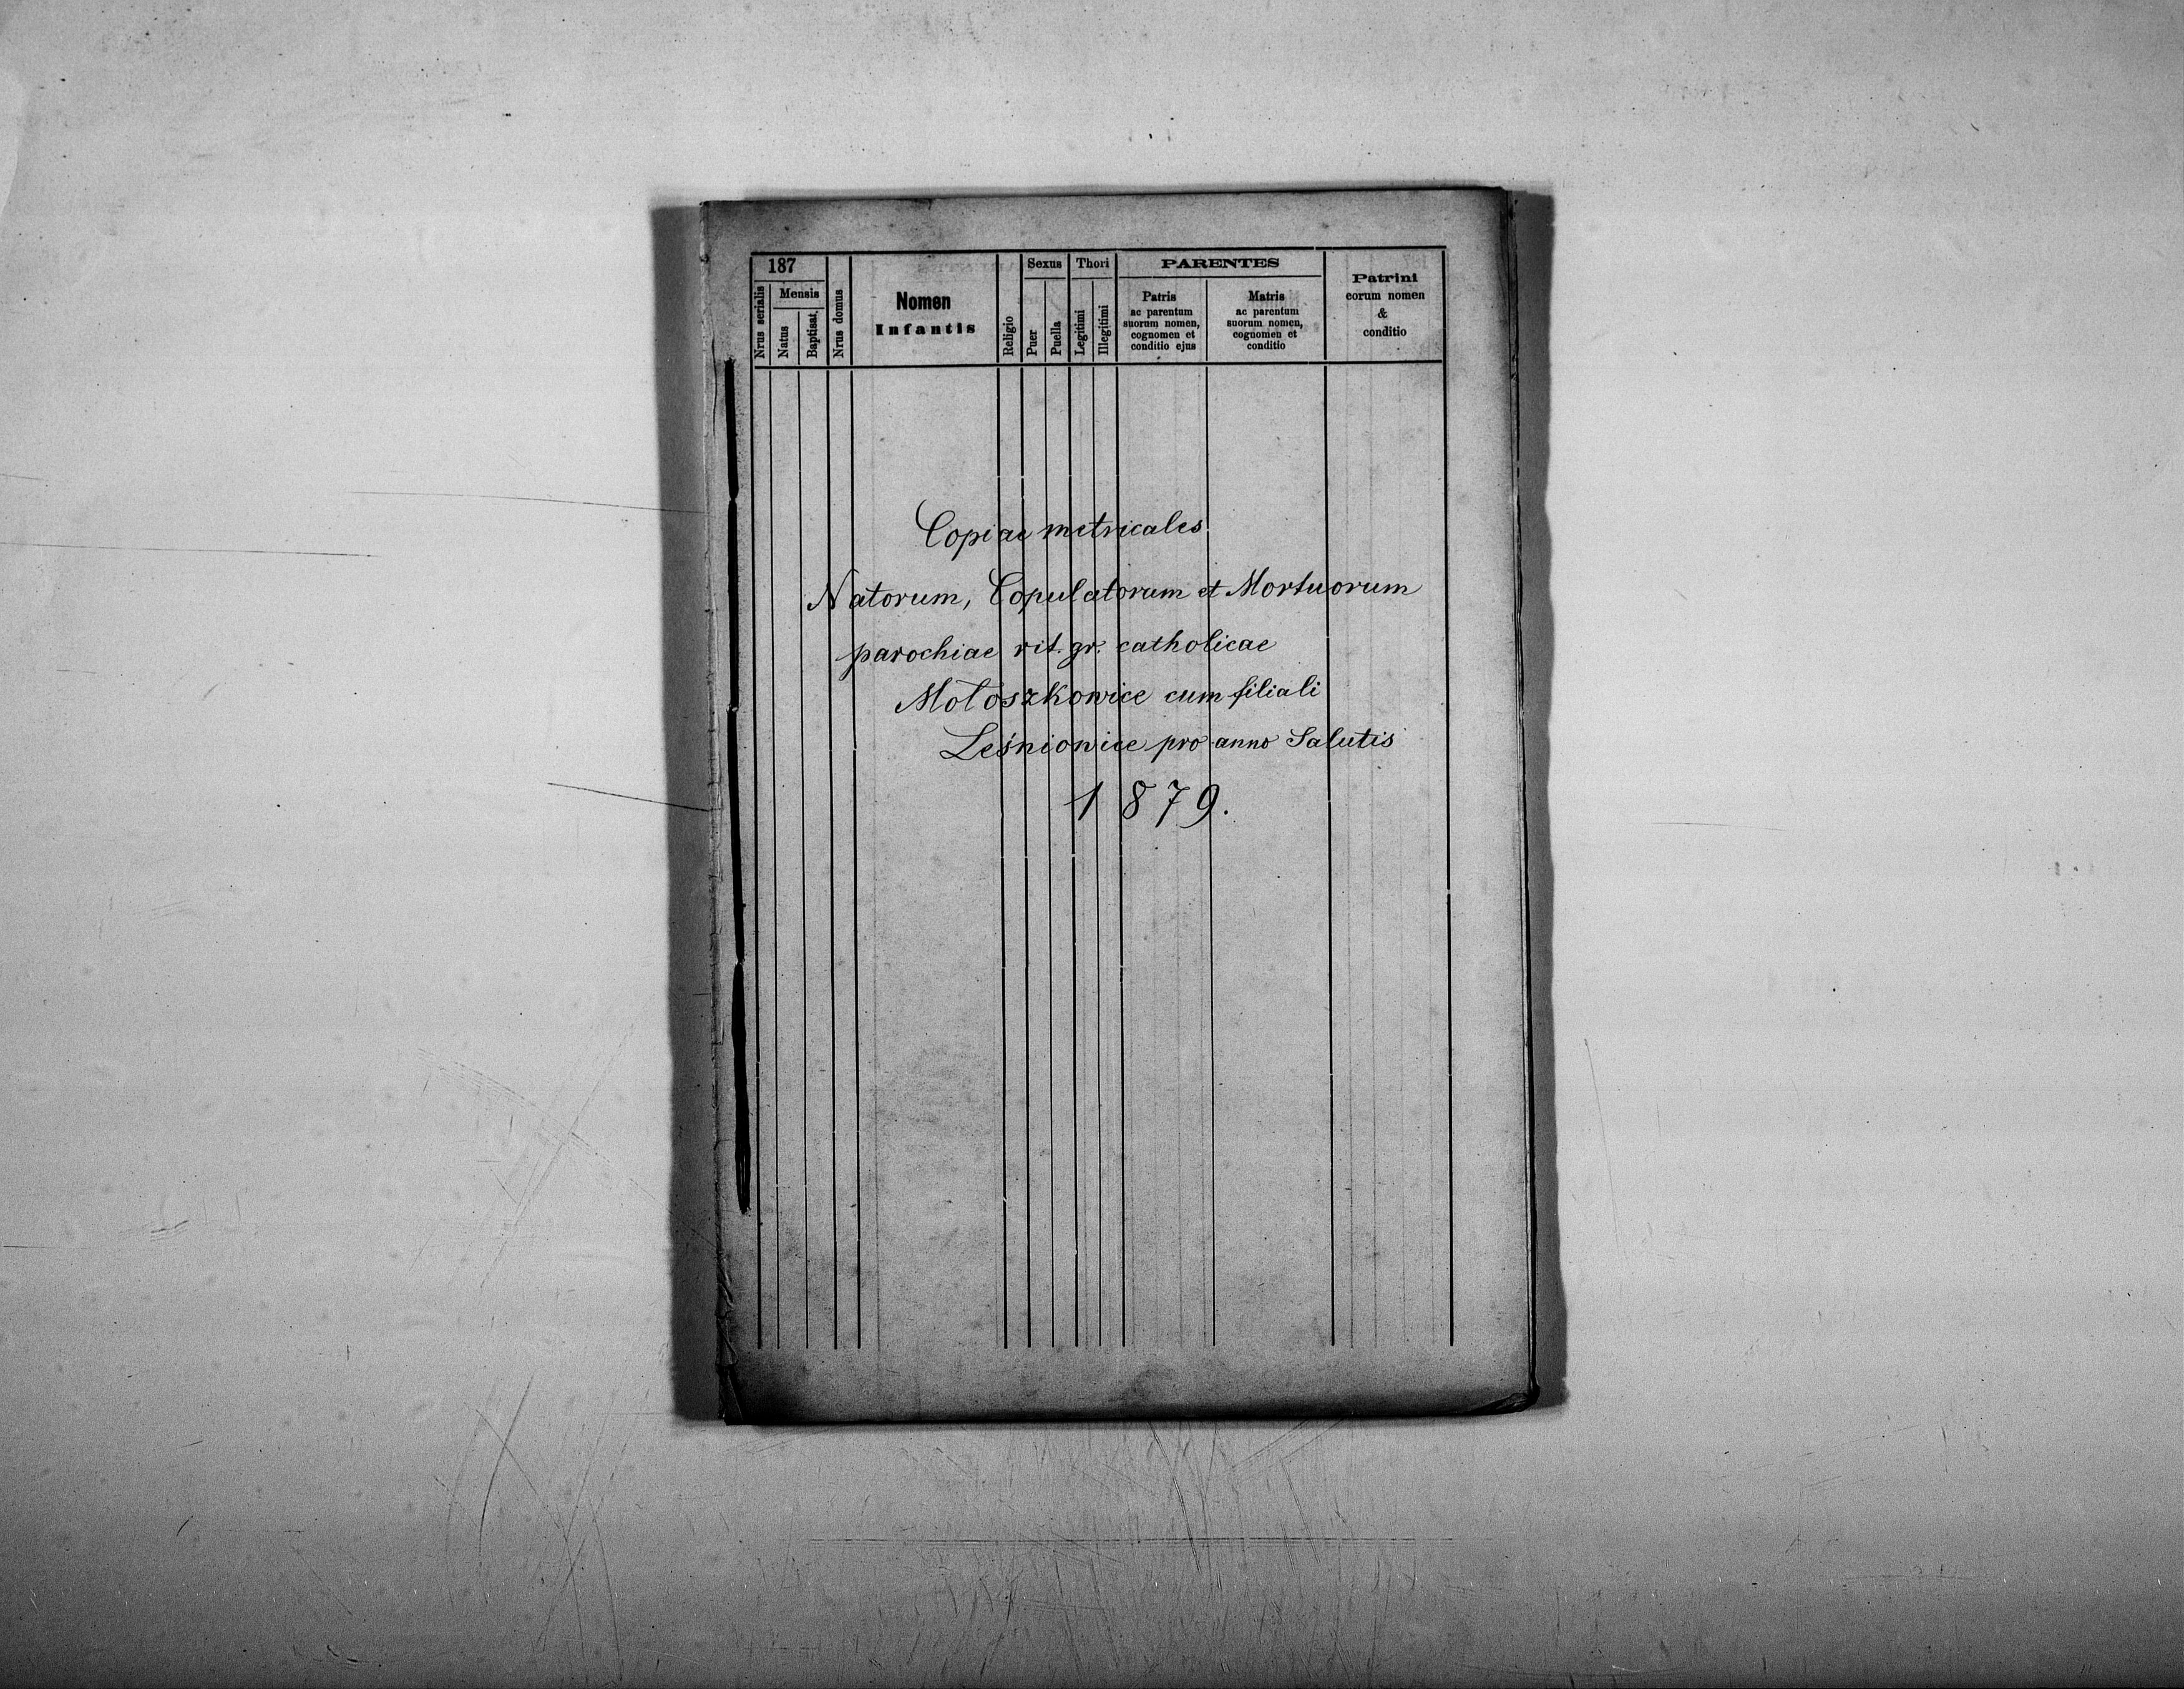 187
Nrus serialis
Mensis
Natus
Baptisat.
Nrus domus
Nomen
Infantis
Religio
Sexus
Puer
Puella
Thori
Legitimi
Illegitimi
PARENTES
Patris
ac parentum
suorum nomen,
cognomen et
conditio ejus
Matris
ac parentum
suorum nomen,
cognomen et
conditio
Patrini
eorum nomen
&
conditio
Copiae metricales
Natorum, Copulatorum et Mortuorum
parochiae rit. gr. catholicae
Mołoszkowice cum filiali
Leśniowice pro anno Salutis
1879.